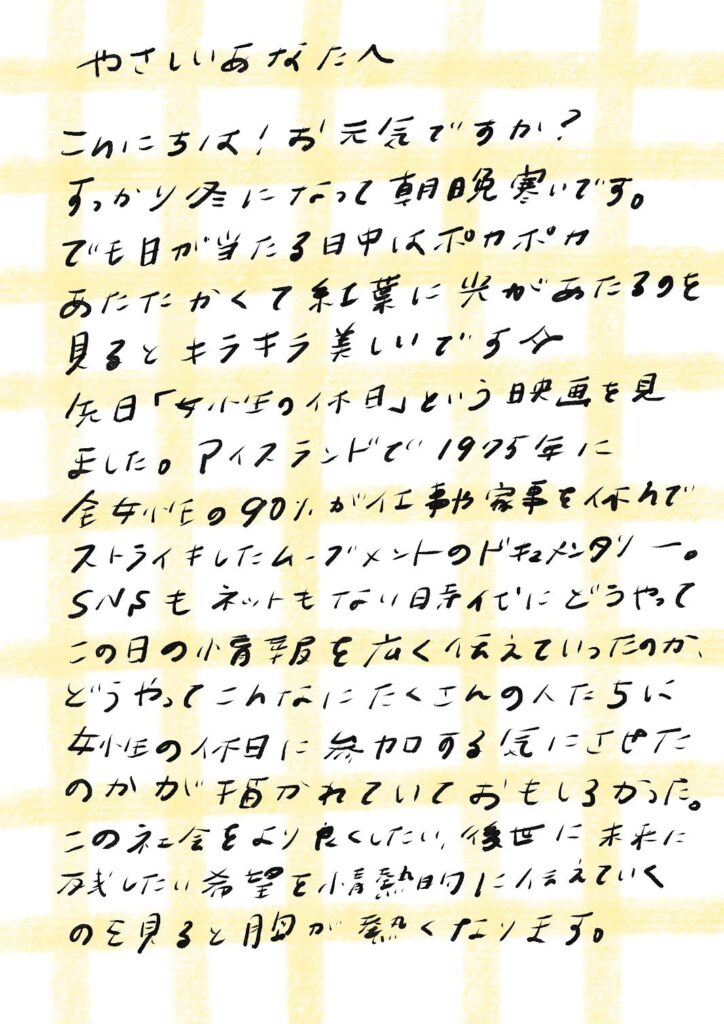 やさしいあなたへ
こんにちは!お元気ですか?
すっかり冬になって朝晩寒いです。
でも日が当たる日中はポカポカ
あたたかくて紅葉に光があたるのを
見るとキラキラ美しいです
先日「女性の休日」という映画を見
ました。アイスランドで1975年に
全女性の90%が仕事や家事を休んで
ストライキしたムーブメントのドキュメンタリー。
SNSもネットもない時代にどうやって
この日の情報を広く伝えていったのか、
どうやってこんなにたくさんの人たちに
女性の休日に参加する気にさせた
のかが描かれていておもしろかった。
この社会をより良くしたい、後世に未来に
残したい希望を情熱的に伝えていく
のを見ると胸が熱くなります。